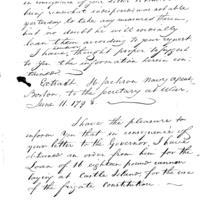 in consequence of your letter
being somewhat indisposed was not able
yesterday to take any measures therein,
but no doubt he will cordially
loan them according to your request.
I have, however, thought proper to suggest to
you the information herein con-
tained.
Extract H. Jackson Navy Agent
Boston, to the Secretary at War.
June 11. 179
I have the pleasure to
inform you that in consequence of
your letter to the Governor, I have
obtained an order from him for the
loan of 18 eighteen pound cannon
laying at Castle Island for the use
of the frigate Constitution.